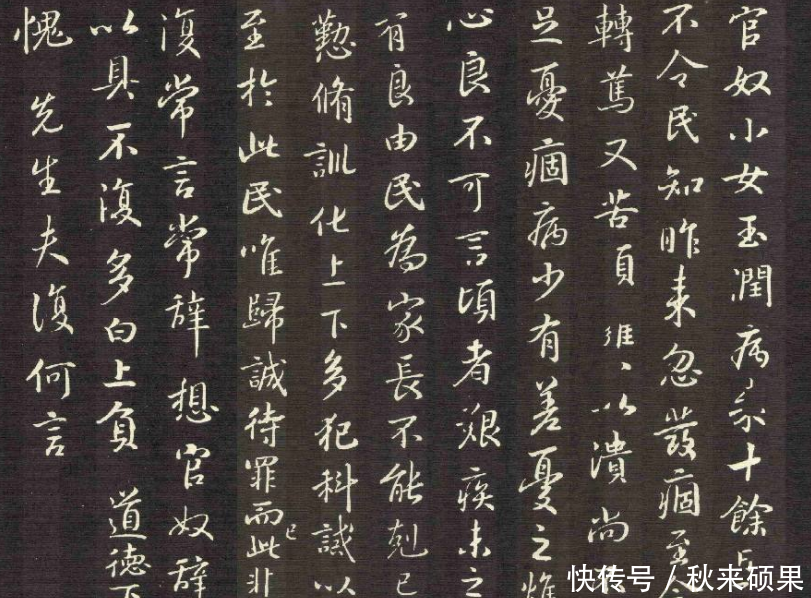 官奴小女玉潤病來十餘日
不令民知昨來忽發痼至今
轉篤又苦頭癰、以潰尚不
足憂痼病少有差憂之燋
心良不可言頃者艱疾未之
有良由民為家長不能剋己
懃脩訓化上下多犯科誡以
至於此民唯歸誠待罪而已此非
復常言常辭想官奴辭
以具不復多白上負 道德下
愧 先生夫復何言
快传号/秋来硕果